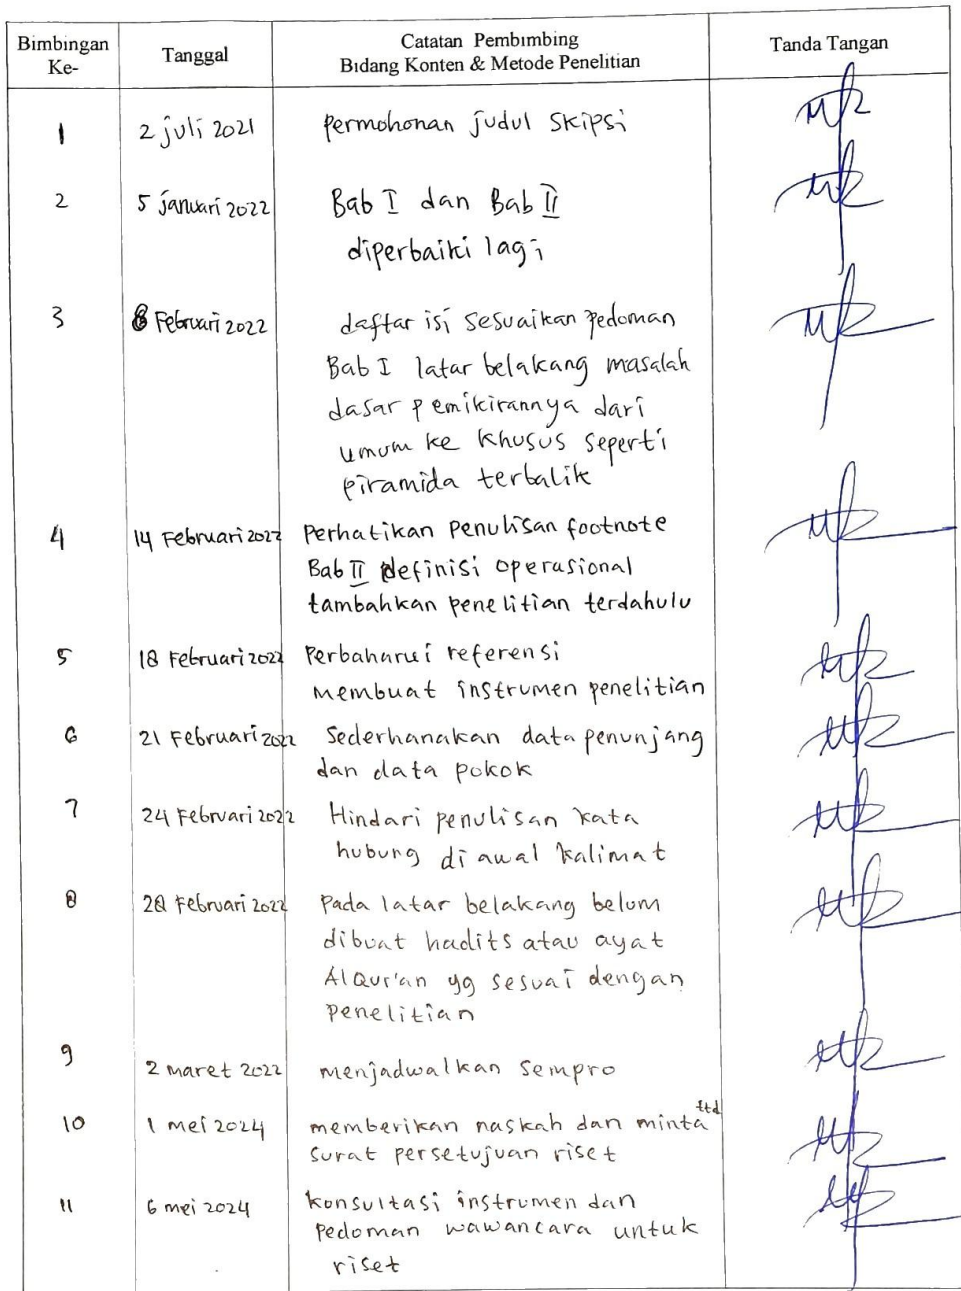 Bimbingan Ke- Tanggal Catatan Pembimbing Bidang Konten & Metode Penelitian Tanda Tangan
1 2 juli 2021 Permohonan judul Skipsi
2 5 januari 2022 Bab I dan Bab II
diperbaiki lagi
3 8 Februari 2022 daftar isi sesuaikan pedoman
Bab I latar belakang masalah
dasar pemikirannya dari
umum ke khusus seperti
piramida terbalik
4 14 Februari 2022 Perhatikan penulisan footnote
Bab II definisi operasional
tambahkan penelitian terdahulu
5 18 Februari 2022 Perbaharui referensi
membuat instrumen penelitian
6 21 Februari 2022 Sederhanakan data penunjang
dan data pokok
7 24 Februari 2022 Hindari penulisan kata
hubung di awal kalimat
8 28 Februari 2022 Pada latar belakang belum
dibuat hadits atau ayat
AlQur'an yg sesuai dengan
penelitian
9 2 maret 2022 menjadwalkan sempro
10 1 mei 2024 memberikan naskah dan minta ttd
surat persetujuan riset
11 6 mei 2024 konsultasi instrumen dan
pedoman wawancara untuk
riset